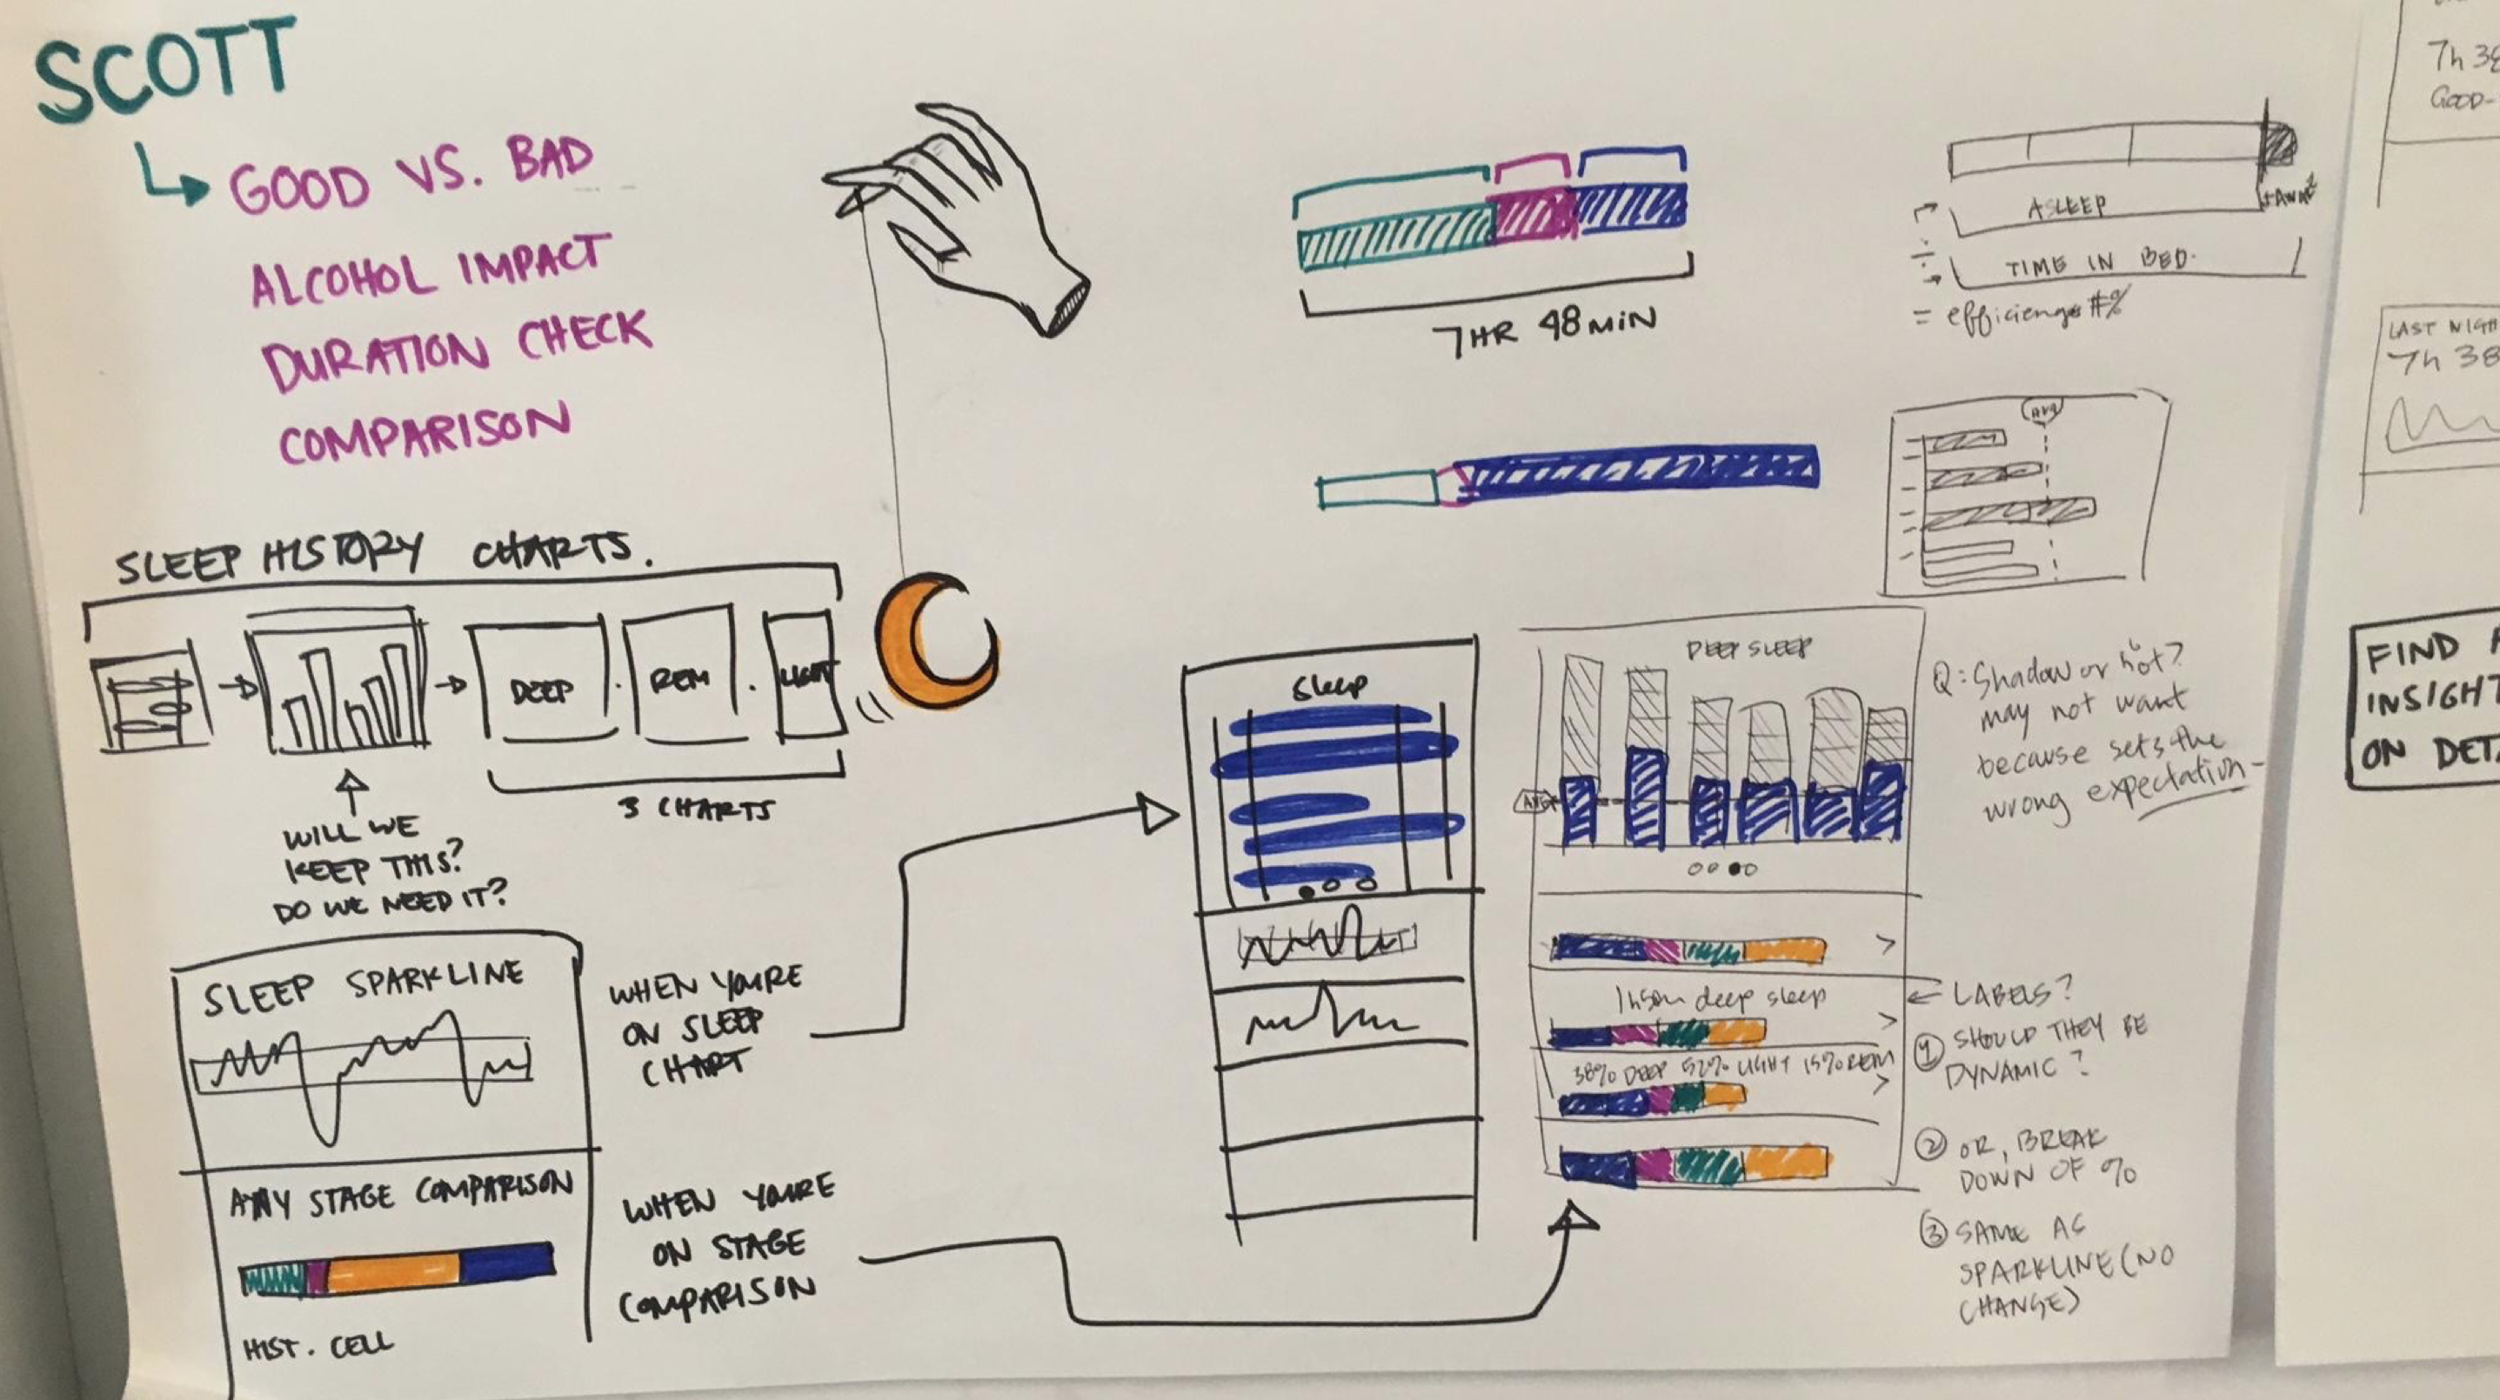 SCOTT
GOOD VS. BAD
ALCOHOL IMPACT
DURATION CHECK
COMPARISON
SLEEP HISTORY CHARTS.
DEEP
REM
LIGHT
3 CHARTS
WILL WE
KEEP THIS?
DO WE NEED IT?
SLEEP SPARKLINE
ANY STAGE COMPARISON
HIST. CELL
WHEN YOU'RE
ON SLEEP
CHART
WHEN YOU'RE
ON STAGE
COMPARISON
7HR 48MIN
ASLEEP
TIME IN BED.
÷
= efficiency #%
AVG
Sleep
DEEP SLEEP
AVG
1h50m deep sleep
38% DEEP 52% LIGHT 15% REM
Q: Shadow or not?
may not want
because sets the
wrong expectation-
← LABELS?
① SHOULD THEY BE
DYNAMIC?
② OR, BREAK
DOWN OF %
③ SAME AS
SPARKLINE (NO
CHANGE)
7h 38
GOOD-
LAST NIGH
7h 38
FIND
INSIGHT
ON DET